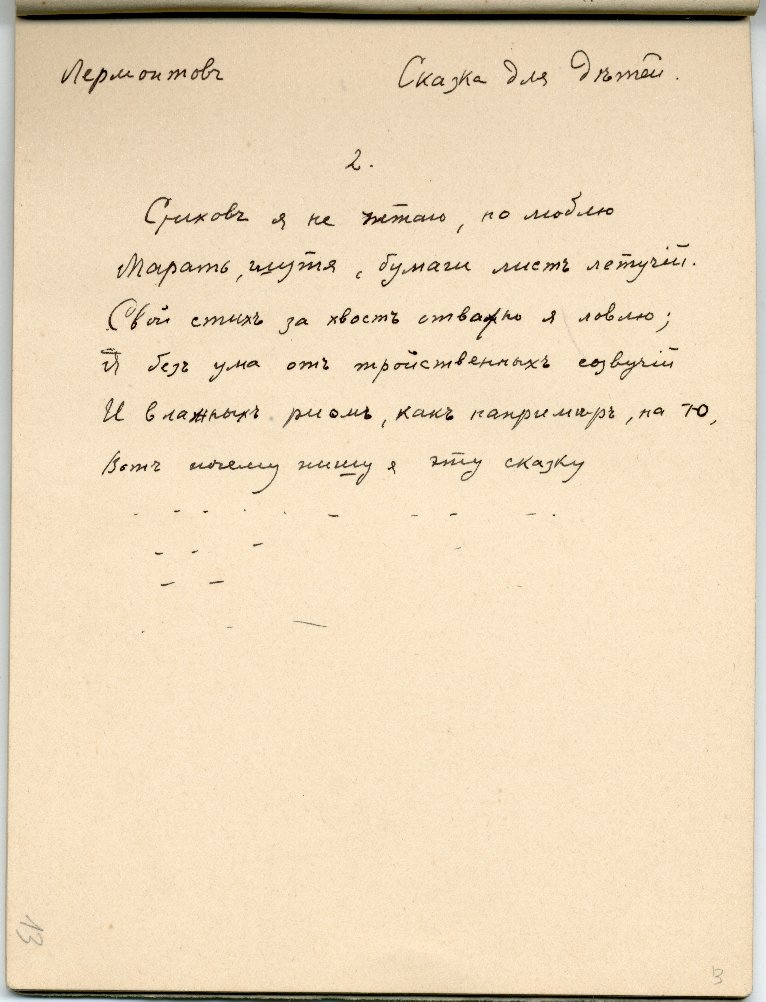 Лермонтовъ Сказка для дѣтей.
2.
Стиховъ я не читаю, но люблю
Марать, шутя, бумаги листъ летучій.
Свой стихъ за хвостъ отважно я ловлю;
Я безъ ума отъ тройственныхъ созвучій
И влажныхъ риѳмъ, какъ напримѣръ, на Ю,
Вотъ почему пишу я эту сказку
13
13